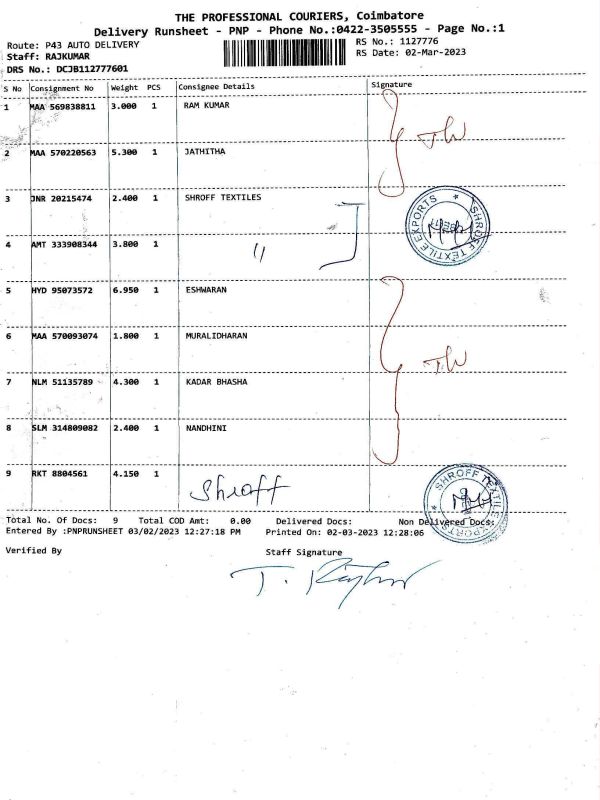 THE PROFESSIONAL COURIERS, Coimbatore
Delivery Runsheet - PNP - Phone No.:0422-3505555 - Page No.:1
Route: P43 AUTO DELIVERY RS No.: 1127776
Staff: RAJKUMAR RS Date: 02-Mar-2023
DRS No.: DCJB112777601
S No Consignment No Weight PCS Consignee Details Signature
1 MAA 569838811 3.000 1 RAM KUMAR
2 MAA 570220563 5.300 1 JATHITHA
3 JNR 20215474 2.400 1 SHROFF TEXTILES
SHROFF TEXTILE EXPORTS
4 AMT 333908344 3.800 1 "
5 HYD 95073572 6.950 1 ESHWARAN
6 MAA 570093074 1.800 1 MURALIDHARAN
7 NLM 51135789 4.300 1 KADAR BHASHA
8 SLM 314809082 2.400 1 NANDHINI
9 RKT 8804561 4.150 1 Shroff
SHROFF TEXTILE EXPORTS
Total No. Of Docs: 9 Total COD Amt: 0.00 Delivered Docs: Non Delivered Docs:
Entered By :PNPRUNSHEET 03/02/2023 12:27:18 PM Printed On: 02-03-2023 12:28:06
Verified By Staff Signature